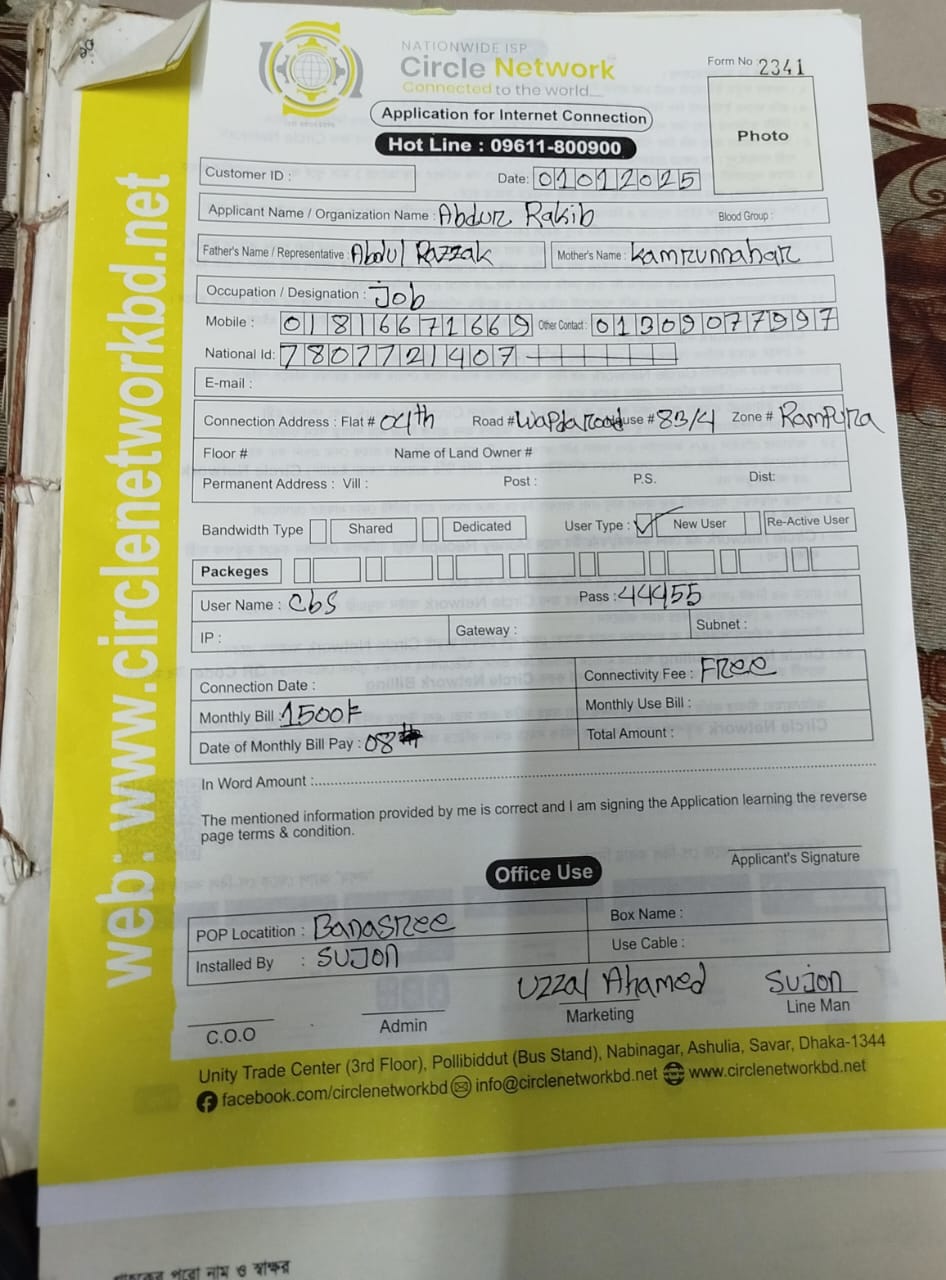 NATIONWIDE ISP
Circle Network
Connected to the world...
Form No 2341
Application for Internet Connection
Photo
Hot Line : 09611-800900
Customer ID :
Date: 01012025
Applicant Name / Organization Name : Abdur Rakib Blood Group :
Father's Name / Representative : Abdul Razzak Mother's Name : Kamrunnahar
Occupation / Designation : Job
Mobile : 01816671669 Other Contact : 01309077997
National Id: 7807721407
E-mail :
Connection Address : Flat # 04th Road # Wapda road House # 83/4 Zone # Rampura
Floor # Name of Land Owner #
Permanent Address : Vill : Post : P.S. Dist:
Bandwidth Type Shared Dedicated User Type : ✓ New User Re-Active User
Packeges
User Name : cbs Pass : 44455
IP : Gateway : Subnet :
Connection Date : Connectivity Fee : Free
Monthly Bill : 1500/= Monthly Use Bill :
Date of Monthly Bill Pay : 08 Total Amount :
In Word Amount :
The mentioned information provided by me is correct and I am signing the Application learning the reverse
page terms & condition.
Applicant's Signature
Office Use
POP Locatition : Banasree Box Name :
Installed By : Sujon Use Cable :
Uzzal Ahamed Sujon
C.O.O Admin Marketing Line Man
Unity Trade Center (3rd Floor), Pollibiddut (Bus Stand), Nabinagar, Ashulia, Savar, Dhaka-1344
facebook.com/circlenetworkbd info@circlenetworkbd.net www.circlenetworkbd.net
web: www.circlenetworkbd.net
গ্রাহকের পুরো নাম ও স্বাক্ষর